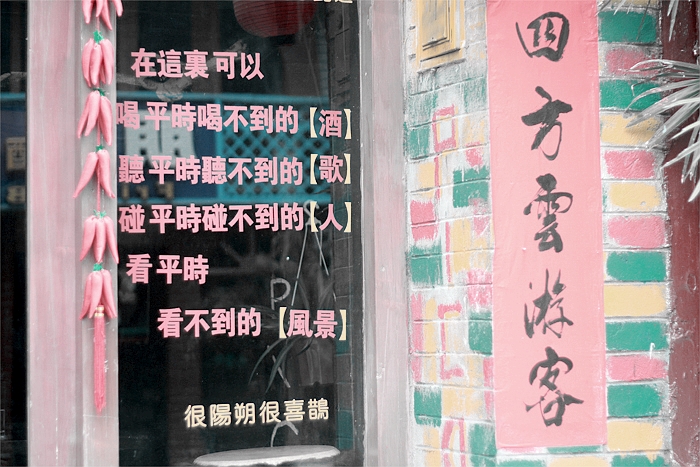 在這裏可以
喝平時喝不到的【酒】
聽平時聽不到的【歌】
碰平時碰不到的【人】
看平時
看不到的【風景】
很陽朔很喜鵲
四方雲游客